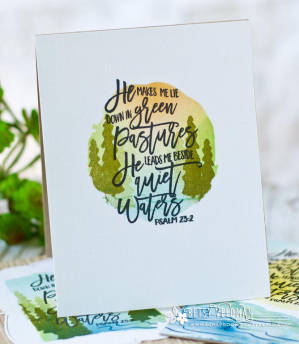 He MAKES ME LIE
DOWN IN green
Pastures
He LEADS ME BESIDE
quiet
Waters
PSALM 23:2
He
Waters
BETSY VELDMAN